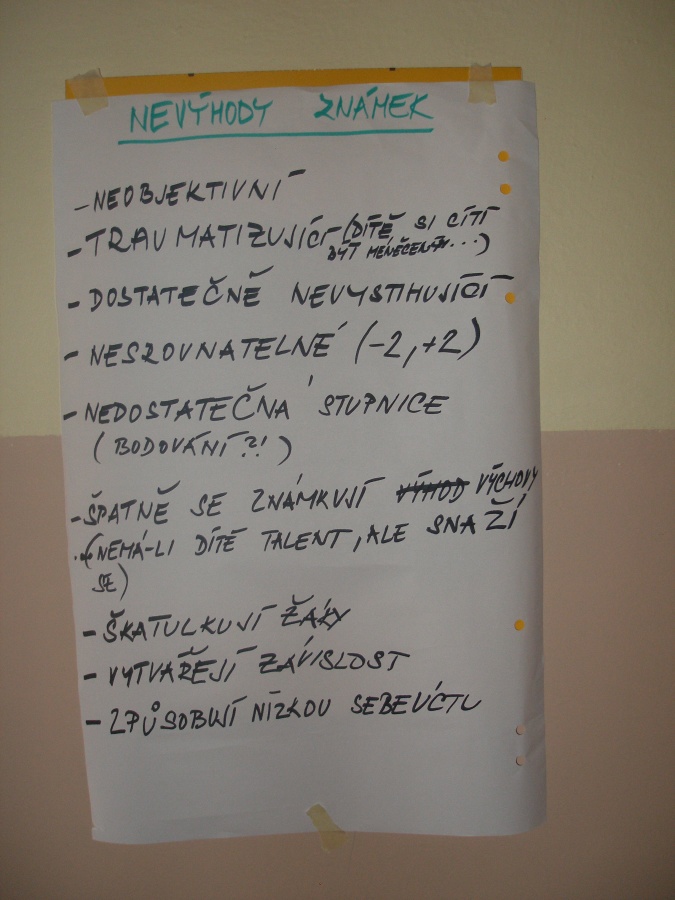 NEVÝHODY ZNÁMEK
- NEOBJEKTIVNÍ
- TRAUMATIZUJÍCÍ (DÍTĚ SI CÍTÍ
BÝT MÉNĚCENNÝ...)
- DOSTATEČNĚ NEVYSTIHUJÍCÍ
- NESROVNATELNÉ (-2,+2)
- NEDOSTATEČNÁ STUPNICE
(BODOVÁNÍ?!)
- ŠPATNĚ SE ZNÁMKUJÍ VÝHOD VÝCHOVY
(NEMÁ-LI DÍTĚ TALENT, ALE SNAŽÍ
SE)
- ŠKATULKUJÍ ŽÁKY
- VYTVÁŘEJÍ ZÁVISLOST
- ZPŮSOBUJÍ NÍZKOU SEBEÚCTU